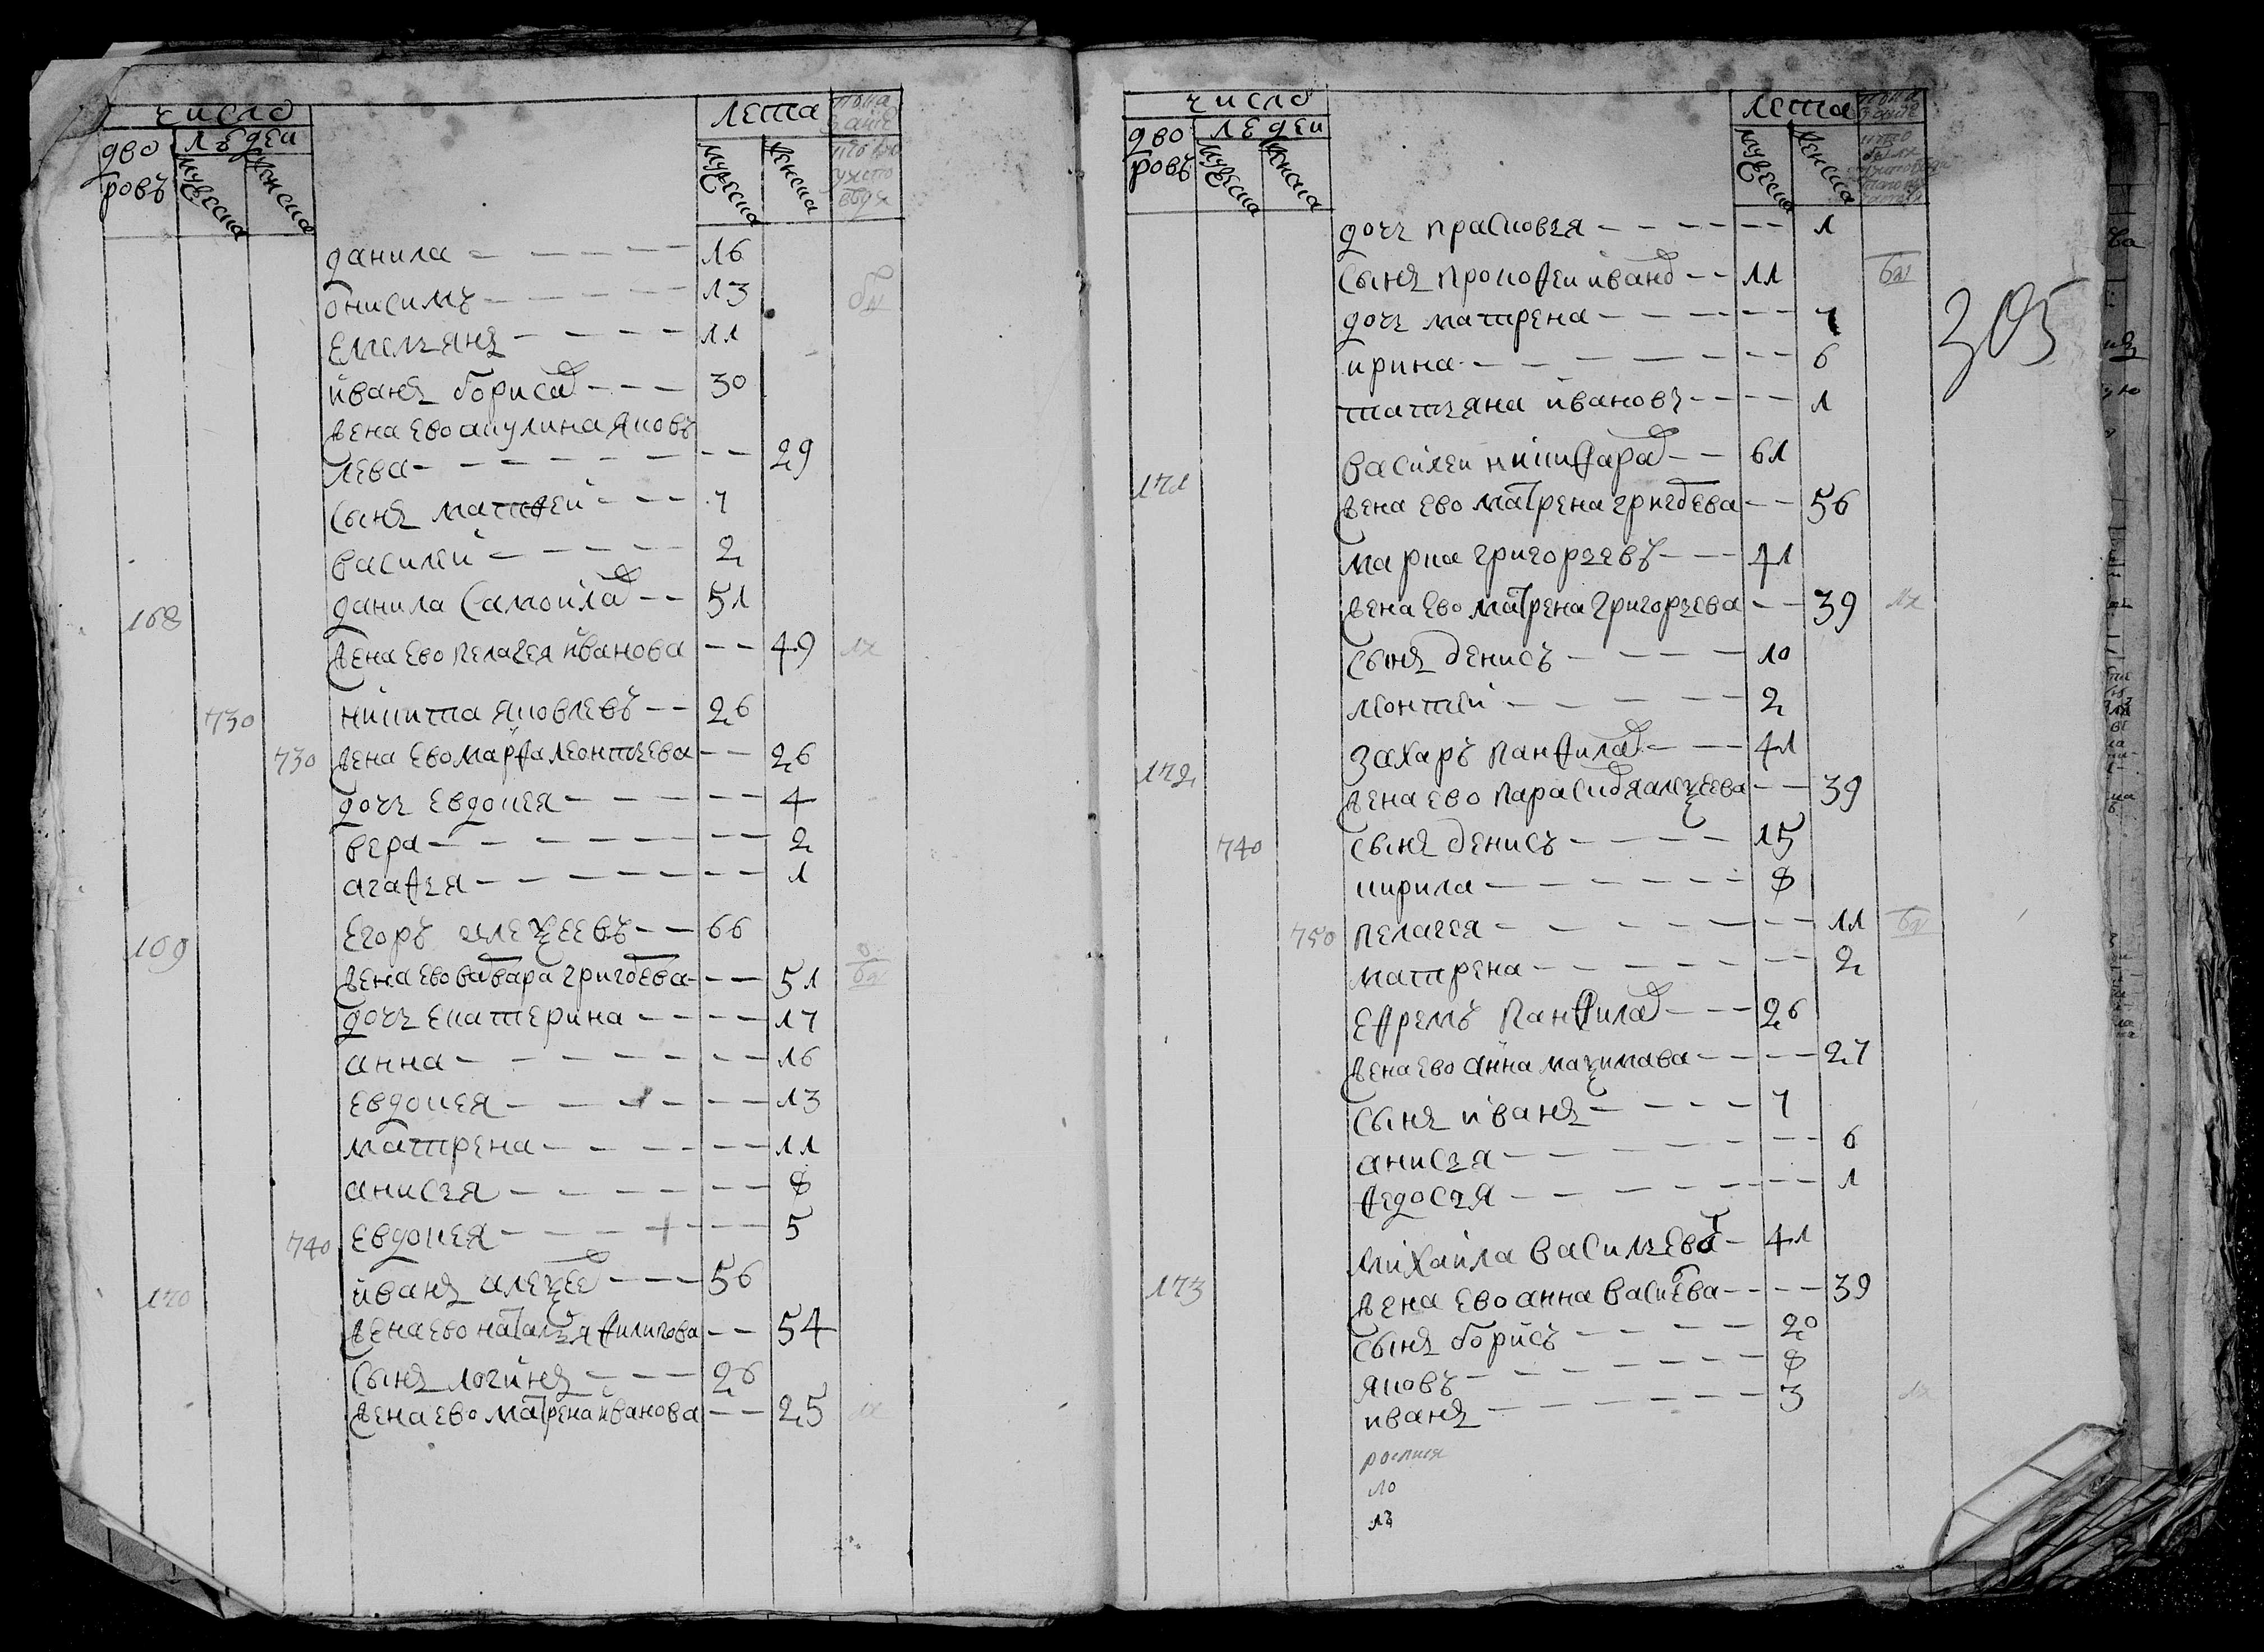 число
лета
дворовъ
людеи
мужеска
женска
мужеска
женска
данила 16
онисимъ 13
емельянъ 11
иванъ борисов 30
жена ево акулина яков
лева 29
сынъ матфеи 7
василеи 2
168 данила самоилов 51
жена ево пелагея иванова 49
730 никита яковлевъ 26
730 жена ево марфа леонтьева 26
дочь евдокея 4
вера 2
агафья 1
169 егоръ алексеевъ 66
жена ево варвара григорева 51
дочь екатерина 17
анна 16
евдокея 13
матрена 11
анисья 8
740 евдокея 5
170 иванъ алексеев 56
жена ево наталья филипова 54
сынъ логинъ 26
жена ево матрена иванова 25
число
лета
дворовъ
людеи
мужеска
женска
мужеска
женска
305
дочь прасковья 1
сынъ прокофеи иванов 11
дочь матрена 7
ирина 6
татьяна иванов 1
171 василеи никифаров 61
жена ево матрена григорева 56
марка григорьевъ 41
жена ево матрена григорьева 39
сынъ денисъ 10
леонтеи 2
172 захаръ панфилов 41
жена ево парасковя алексеева 39
740 сынъ денисъ 15
кирила 8
750 пелагея 11
матрена 2
ефремъ панфилов 26
жена ево анна максимава 27
сынъ иванъ 7
анисья 6
федосья 1
михаила васильев 41
173 жена ево анна василева 39
сынъ борисъ 20
яковъ 8
иванъ 3